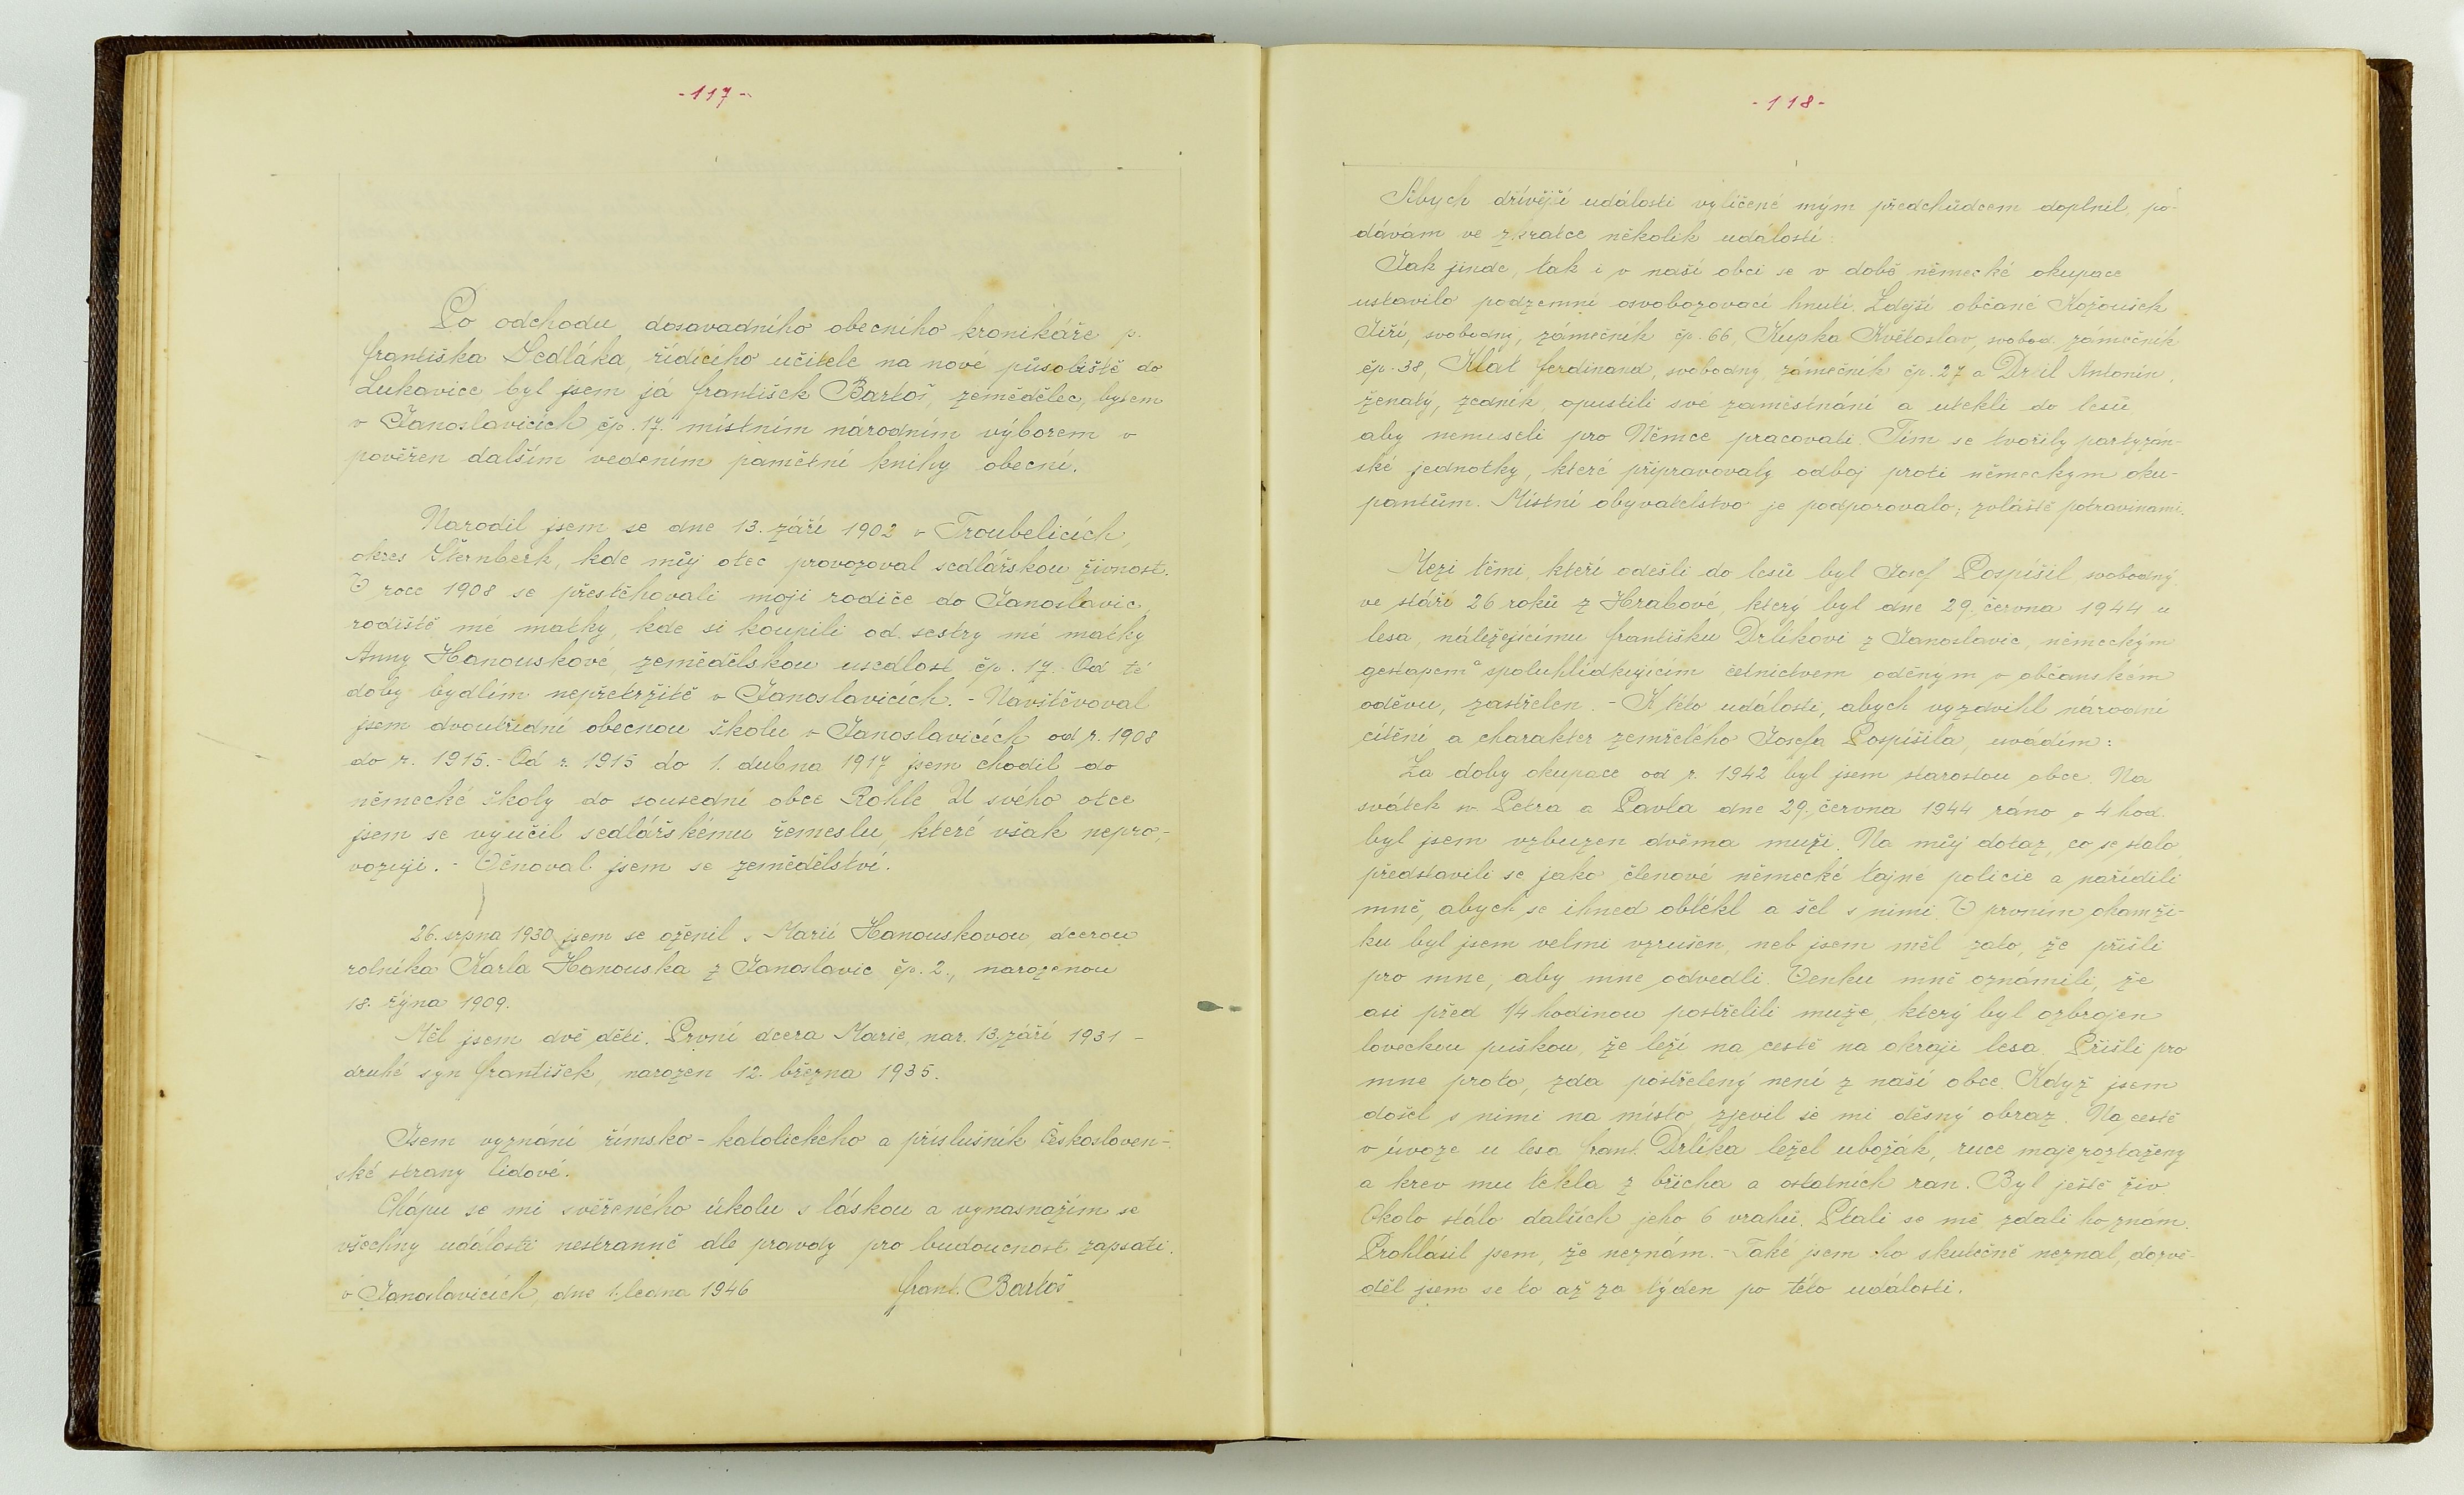 - 117 -
Po odchodu dosavadního obecního kronikáře p.
Františka Sedláka, řídícího učitele na nové působiště do
Lukavice byl jsem já František Bartoš, zemědělec, bytem
v Janoslavicích čp. 17. místním národním výborem v
pověřen dalším vedením pamětní knihy obecní.
Narodil jsem se dne 13. září 1902 v Troubelicích,
okres Šternberk, kde můj otec provozoval sedlářskou živnost.
V roce 1908 se přestěhovali moji rodiče do Janoslavic,
rodiště mé matky, kde si koupili od sestry mé matky
Anny Hanouskové, zemědělskou usedlost čp. 17. Od té
doby bydlím nepřetržitě v Janoslavicích. - Navštěvoval
jsem dvoutřídní obecnou školu v Janoslavicích od r. 1908
do r. 1915. - Od r. 1915 do 1. dubna 1917 jsem chodil do
německé školy do sousední obce Rohle. U svého otce
jsem se vyučil sedlářskému řemeslu, které však nepro-
vozuji. - Věnoval jsem se zemědělství.
26. srpna 1930 jsem se oženil s Marií Hanouskovou, dcerou
rolníka Karla Hanouska z Janoslavic čp. 2., narozenou
18. října 1909.
Měl jsem dvě děti. První dcera Marie, nar. 13. září 1931 -
druhé syn František, narozen 12. března 1935.
Jsem vyznání římsko-katolického a příslušník Českosloven-
ské strany lidové.
Chápu se mi svěřeného úkolu s láskou a vynasnažím se
všechny události nestranně dle pravdy pro budoucnost zapsati.
v Janoslavicích, dne 1. ledna 1946 Frant. Bartoš
- 118 -
Abych dřívější události vylíčené mým předchůdcem doplnil, po-
dávám ve zkratce několik událostí:
Jak jinde, tak i v naší obci se v době německé okupace
ustavilo podzemní osvobozovací hnutí. Zdejší občané Kožoušek
Jiří, svobodný, zámečník čp. 66, Kupka Květoslav, svobod. zámečník
čp. 38, Klát Ferdinand, svobodný, zámečník čp. 27 a Drlil Antonín,
ženatý, zedník, opustili své zaměstnání a utekli do lesů,
aby nemuseli pro Němce pracovati. Tím se tvořily partyzán-
ské jednotky, které připravovaly odboj proti německým oku-
pantům. Místní obyvatelstvo je podporovalo, zvláště potravinami.
Mezi těmi, kteří odešli do lesů byl Josef Pospíšil, svobodný
ve stáří 26 roků z Hrabové, který byl dne 29. června 1944 u
lesa, náležejícímu Františku Drlíkovi z Janoslavic, německým
gestapem a spoluhlídkujícím četnictvem oděným v občanském
oděvu, zastřelen. - K této události, abych vyzdvihl národní
cítění a charakter zemřelého Josefa Pospíšila, uvádím:
Za doby okupace od r. 1942 byl jsem starostou obce. Na
svátek sv. Petra a Pavla dne 29. června 1944 ráno v 4 hod.
byl jsem vzbuzen dvěma muži. Na můj dotaz, co se stalo,
představili se jako členové německé tajné policie a nařídili
mně, abych se ihned oblékl a šel s nimi. V prvním okamži-
ku byl jsem velmi vzrušen, neb jsem měl zato, že přišli
pro mne, aby mne odvedli. Venku mně oznámili, že
asi před 1/4 hodinou postřelili muže, který byl ozbrojen
loveckou puškou, že leží na cestě na okraji lesa. Přišli pro
mne proto, zda postřelený není z naší obce. Když jsem
došel s nimi na místo, zjevil se mi děsný obraz. Na cestě
v úvoze u lesa Frant. Drlíka ležel ubožák, ruce maje roztaženy
a krev mu tekla z břicha a ostatních ran. Byl ještě živ.
Okolo stálo dalších jeho 6 vrahů. Ptali se mě, zdali ho znám.
Prohlásil jsem, že neznám. - Také jsem ho skutečně neznal, dozvě-
děl jsem se to až za týden po této události.